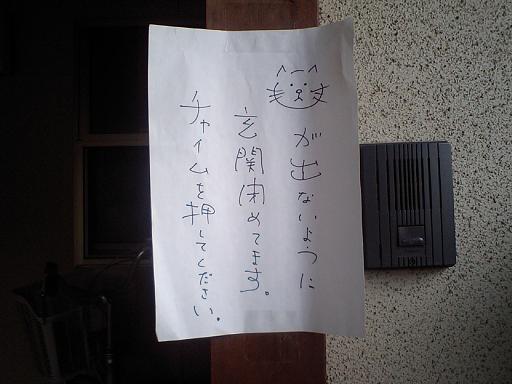 が出ないように
玄関閉めてます。
チャイムを押してください。